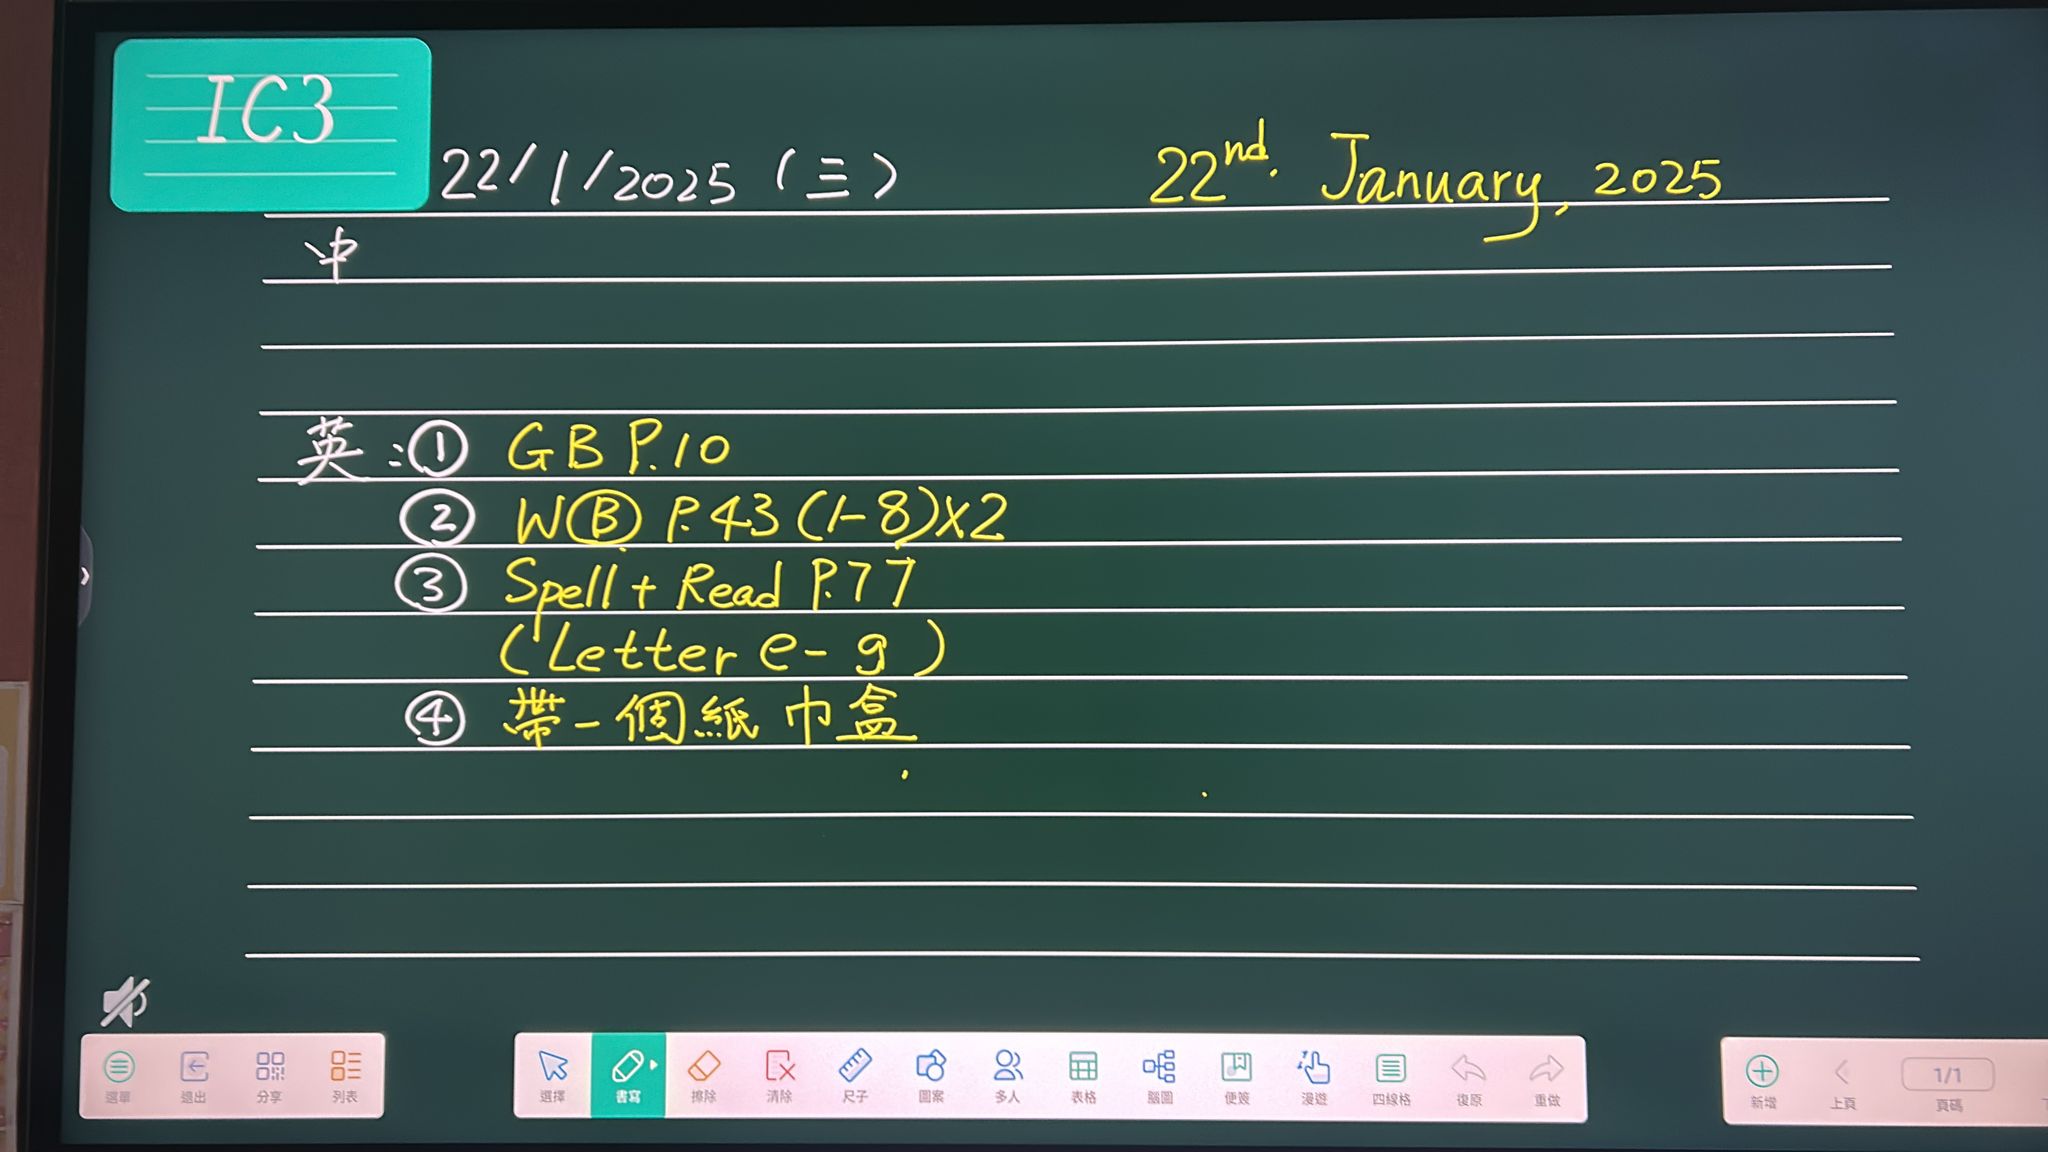 IC3
22/1/2025 (三) 22nd. January, 2025
中
英:① GB P.10
② WⒷ P.43 (1-8)x2
③ Spell + Read P.77
(Letter e-g)
④ 帶一個紙巾盒
選單 退出 分享 列表 選擇 書寫 擦除 清除 尺子 圖案 多人 表格 腦圖 便簽 漫遊 四線格 復原 重做 新增 上頁 1/1 頁碼